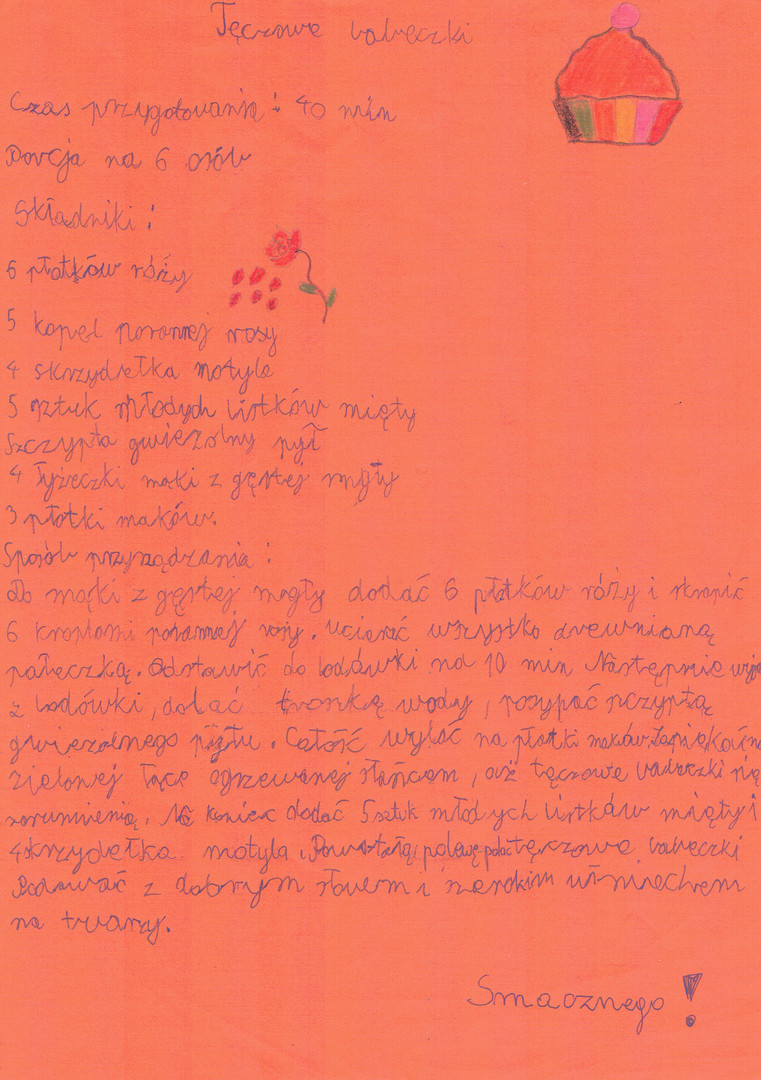 Tęczowe babeczki
Czas przygotowania: 40 min
Porcja na 6 osób
Składniki:
6 płatków róży
5 kropel porannej rosy
4 skrzydełka motyle
5 sztuk młodych listków mięty
Szczypta gwiezdny pył
4 łyżeczki mąki z gęstej mgły
3 płatki maków.
Sposób przyrządzania:
Do mąki z gęstej mgły dodać 6 płatków róży i skropić
6 kroplami porannej rosy. Ucierać wszystko drewnianą
pałeczką. Odstawić do lodówki na 10 min Następnie
z lodówki, dolać troszkę wody, posypać szczyptą
gwiezdnego pyłu. Całość wylać na płatki maków.
zielonej łące ogrzewanej słońcem, aż tęczowe babeczki się
zarumienią. Na koniec dodać 5 sztuk młodych listków mięty i
4 skrzydełka motyla. Powstałą polewą polać tęczowe babeczki
Podawać z dobrym słowem i szerokim uśmiechem
na twarzy.
Smacznego!